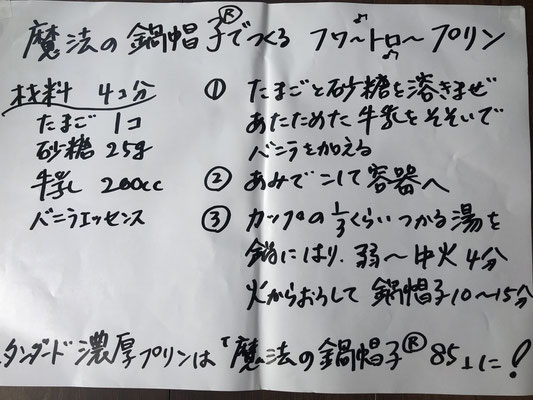 魔法の鍋帽子®でつくる フワ〜トロ〜プリン
材料 4コ分
たまご 1コ
砂糖 25g
牛乳 200cc
バニラエッセンス
① たまごと砂糖を溶きまぜ
あたためた牛乳をそそいで
バニラを加える
② あみでこして容器へ
③ カップの1/3くらいつかる湯を
鍋にはり、弱〜中火4分
火からおろして鍋帽子10〜15分
タンダード濃厚プリンは「魔法の鍋帽子®85」に!